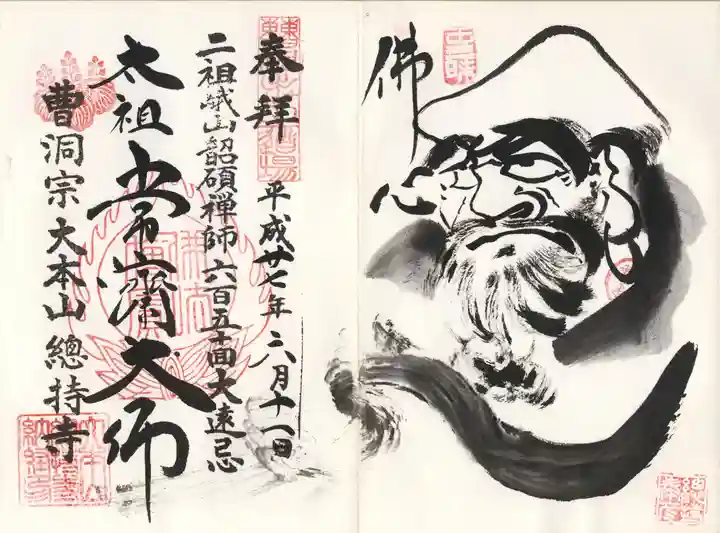 佛心
奉拝
平成廿七年
二祖峨山韶碩禅師 六百五十回大遠忌
太祖常濟大師
曹洞宗大本山總持寺